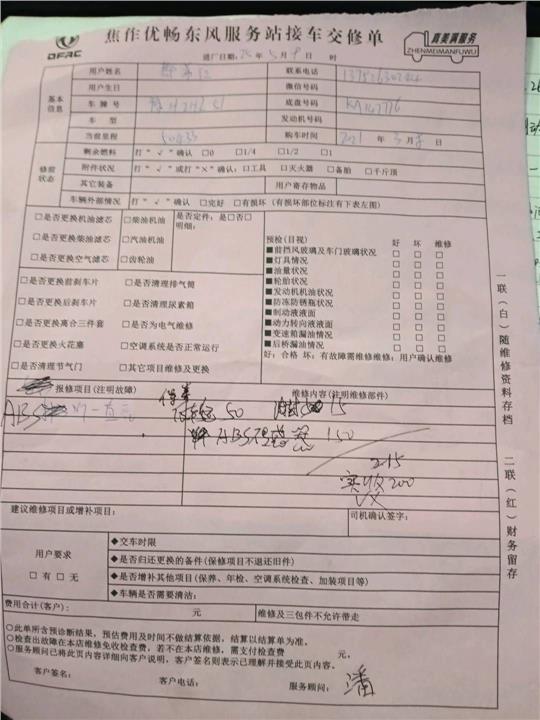 DFAC
焦作优畅东风服务站接车交修单
真美满服务
ZHENMEIMANFUWU
进厂日期: 年 5 月 9 日 时
基本信息
用户姓名
联系电话
用户生日
微信号码
车牌号
底盘号码
车型
发动机号码
当前里程 50433
购车时间 2021 年 月 日
修前状态
剩余燃料 打“√”确认 □0 □1/4 □1/2 □1
附件状况 打“√”或打“X”确认: □工具 □灭火器 □备胎 □千斤顶
其它装备
用户寄存物品
车辆外部情况 打“√”确认 □完好 □有损坏 (有损坏部位标注有下表左图)
□是否更换机油滤芯 □柴油机油 是否定件: 是□否□
明细:
□是否更换柴油滤芯 □汽油机油
□是否更换空气滤芯 □齿轮油
□是否更换前刹车片 □是否清理排气筒
□是否更换后刹车片 □是否清理尿素箱
□是否更换离合三件套 □是否为电气维修
□是否更换火花塞 □空调系统是否正常运行
□是否清理节气门 □其它项目维修及更换
预检(目视) 好 坏 维修
■前挡风玻璃及车门玻璃状况 □ □ □
■灯具情况 □ □ □
■油量状况 □ □ □
■轮胎状况 □ □ □
■发动机机油状况 □ □ □
■防冻防锈瓶状况 □ □ □
■制动液液面 □ □ □
■动力转向液液面 □ □ □
■变速箱漏油情况 □ □ □
■后桥漏油情况 □ □ □
好: 合格 坏: 有故障需维修维修: 用户确认维修
报修项目(注明故障)
维修内容(注明维修部件)
ABS
50 15
ABS 150
215
实收200
建议维修项目或增补项目:
司机确认签字:
用户要求
□有 □无
◆交车时限
◆是否归还更换的备件(保修项目不退还旧件)
◆是否增补其他项目(保养、年检、空调系统检查、加装项目等)
◆车辆是否需要清洁:
费用合计(客户): 元
维修及三包件不允许带走
○此单所含预诊断结果,预估费用及时间不做结算依据,结算以结算单为准。
○检查出故障在本店维修免收检查费,若不在本店维修,需支付检查费 元。
○服务顾问已将此页内容详细向客户说明,客户签名则表示已理解并接受此页内容。
客户签名: 客户电话: 服务顾问: 潘
一联(白)随维修资料存档
二联(红)财务留存